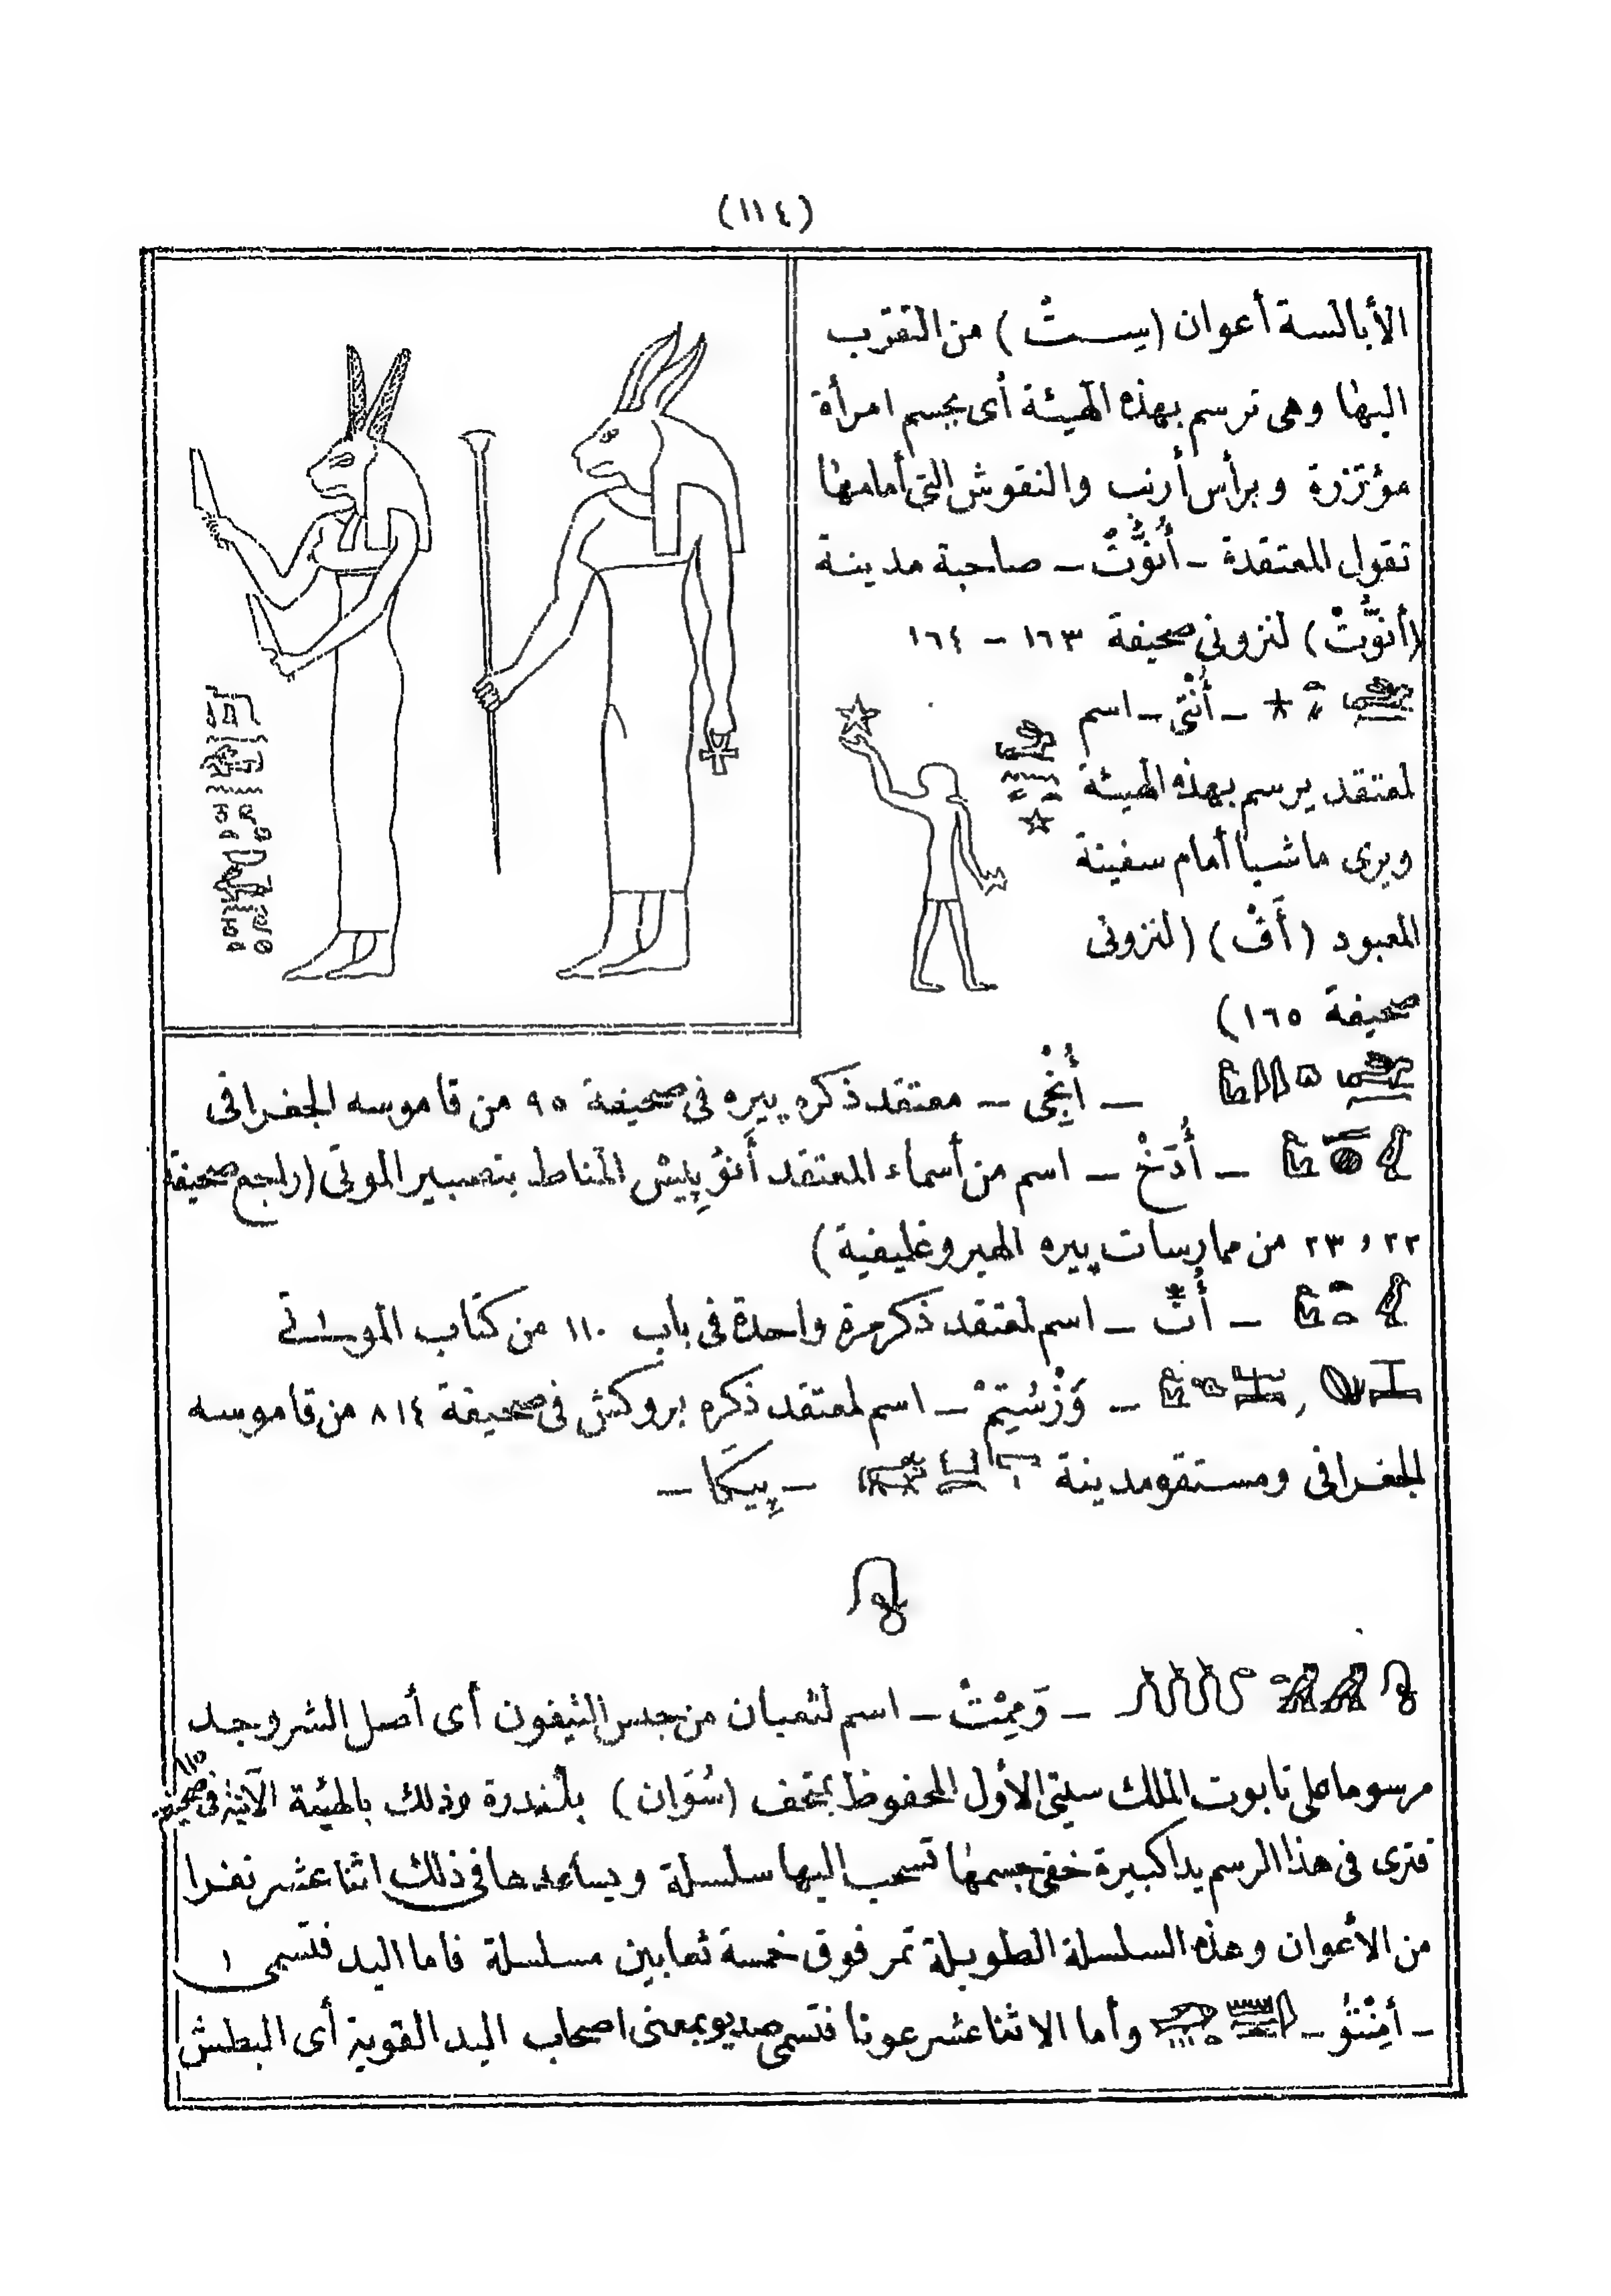 (١١٤)
الأبالسة أعوان (سِتْ) من التقرب
اليها وهى ترسم بهذه الهيئة أى بجسم امرأة
مؤتزرة وبرأس أرنب والنقوش التى أمامها
تقول المعتقدة - أُنُوُّتْ - صاحبة مدينة
(أُنوُّتْ) لنزونى صحيفة ١٦٣ - ١٦٤
- أُنْتِى - اسم
لمعتقد يرسم بهذه الهيئة
ويرى ماشيا أمام سفينة
المعبود (أَفْ) (لنزونى
صحيفة ١٦٥)
- أُنْخِى - معتقد ذكره پيره فى صحيفة ٩٥ من قاموسه الجغرافى
- أُدَخْ - اسم من أسماء المعتقد أَنُوُبِيسْ المناط بتصبير الموتى (راجع صحيفة
٢٢ و ٢٣ من ممارسات پيره الهيروغليفية)
- أُتْ - اسم لمعتقد ذكر مرة واحدة فى باب ١١٠ من كتاب الموتى
- وَزْسُتِمْ - اسم لمعتقد ذكره بروكش فى صحيفة ٨١٤ من قاموسه
الجغرافى ومستقره مدينة - پيكَا -
- وَمِمْتْ - اسم لثعبان من جنس التيفون أى أصل الشر وجد
مرسوما على تابوت الملك سيتى الأول المحفوظ بمتحف (سُوَان) بلُندرة وذلك بالهيئة الآتية فى صحيفة ١١٥
فترى فى هذا الرسم يدا كبيرة خفى جسمها تسحب اليها سلسلة ويساعدها فى ذلك اثنا عشر نفرا
من الأعوان وهذه السلسلة الطويلة تمر فوق خمسة ثعابين مسلسلة فاما اليد فتسمى
- أَمِنْتُو - وأما الاثنا عشر عونا فتسمى صديو بمعنى اصحاب اليد القوية أى البطش